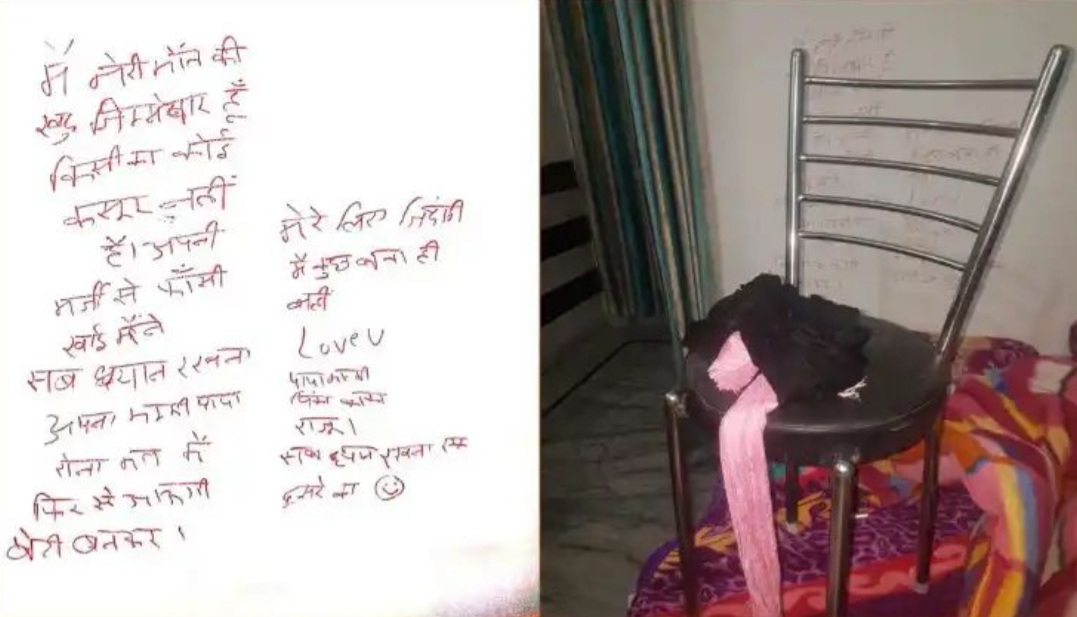 मैं मेरी मौत की
खुद जिम्मेदार हूँ
किसी का कोई
कसूर नहीं
है। अपनी
मर्जी से फाँसी
खाई मैंने
सब ध्यान रखना
अपना मम्मी पापा
रोना मत मैं
फिर से आऊंगी
बेटी बनकर।
मेरे लिए जिंदगी
में कुछ बचा ही
नहीं
Love U
पापा मम्मी
राजू।
सब ध्यान रखना एक
दूसरे का ☺